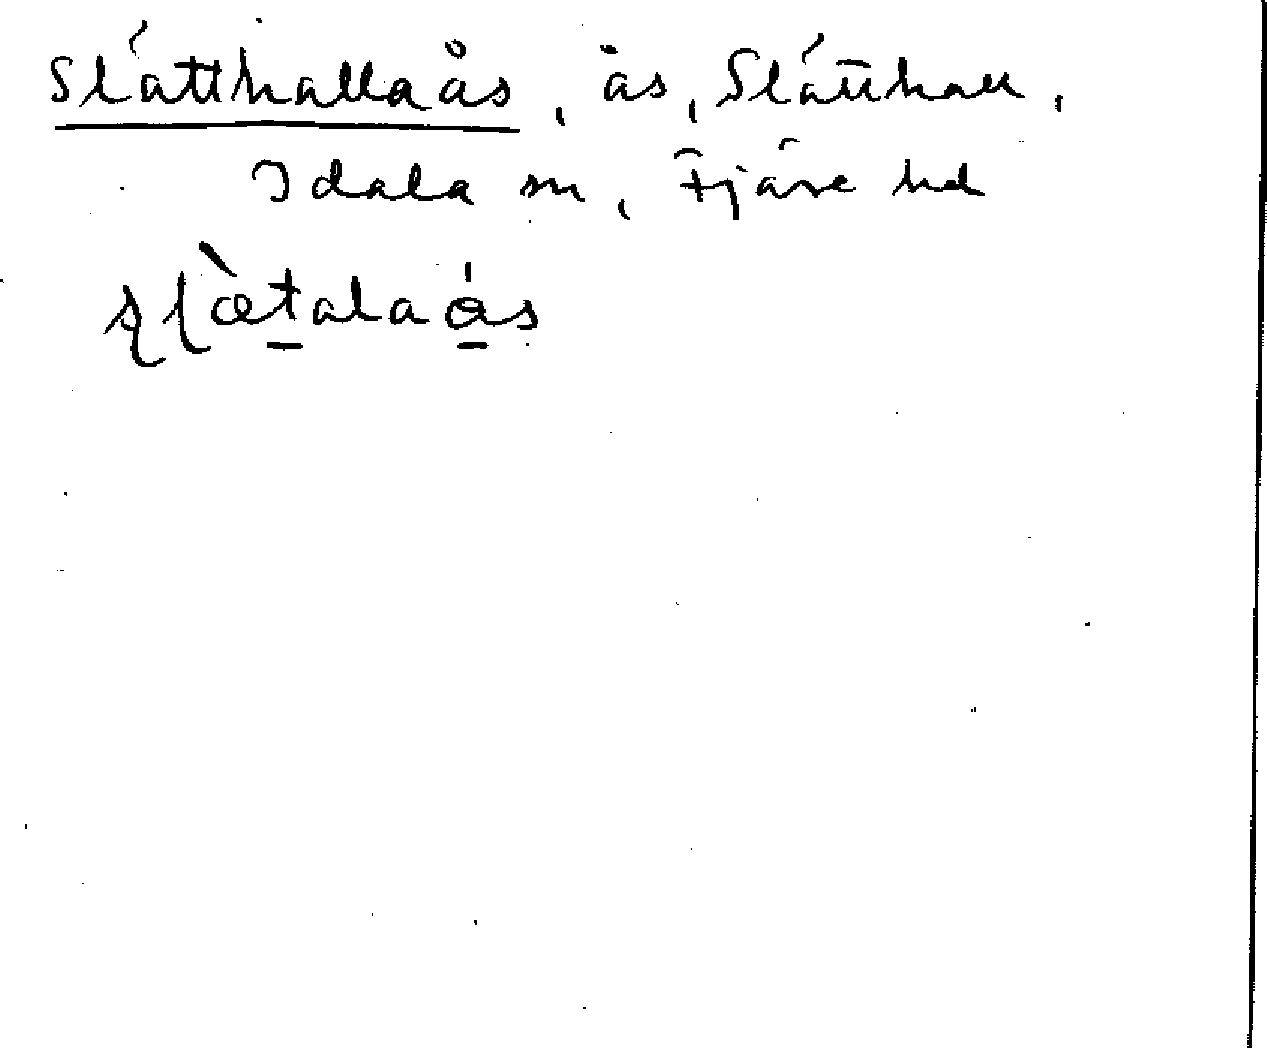 Slätthallaås, ås, Slätthall,
Idala sn, Fjäre hd
ʂɭæ̀talaás